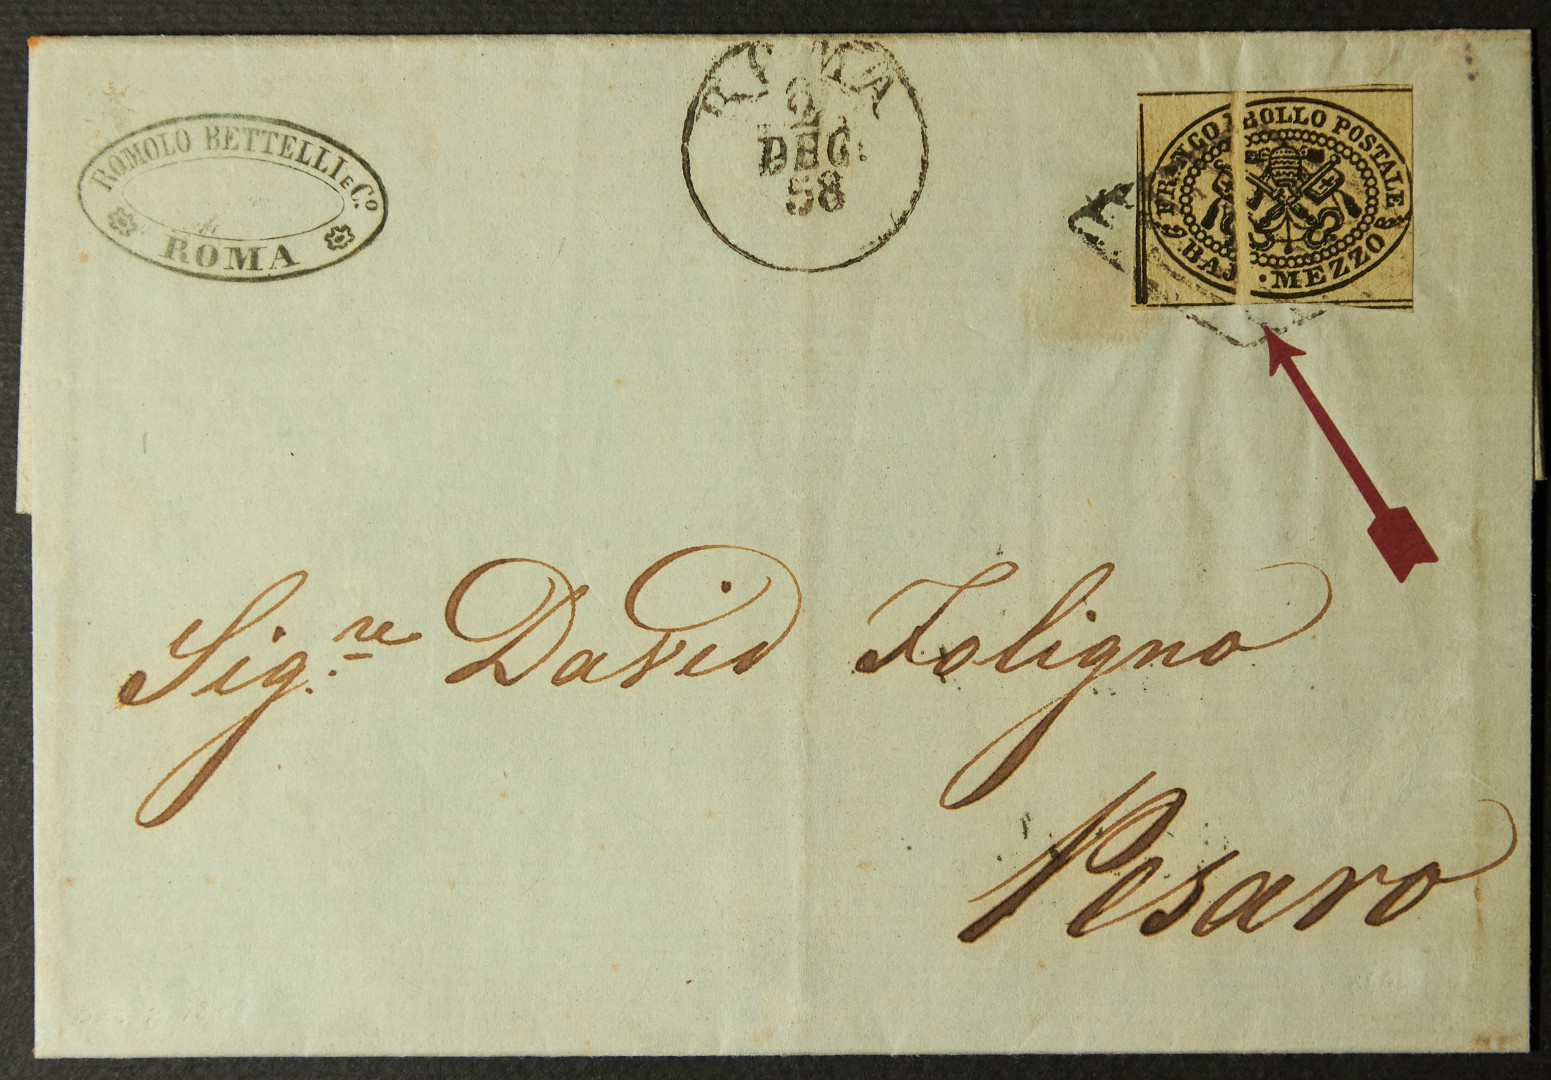 ROMOLO BETTELLI E C.º
ROMA
ROMA
2
DEC.
58
FRANCO BOLLO POSTALE
BAJ · MEZZO
Sig.re David Foligno
Pesaro